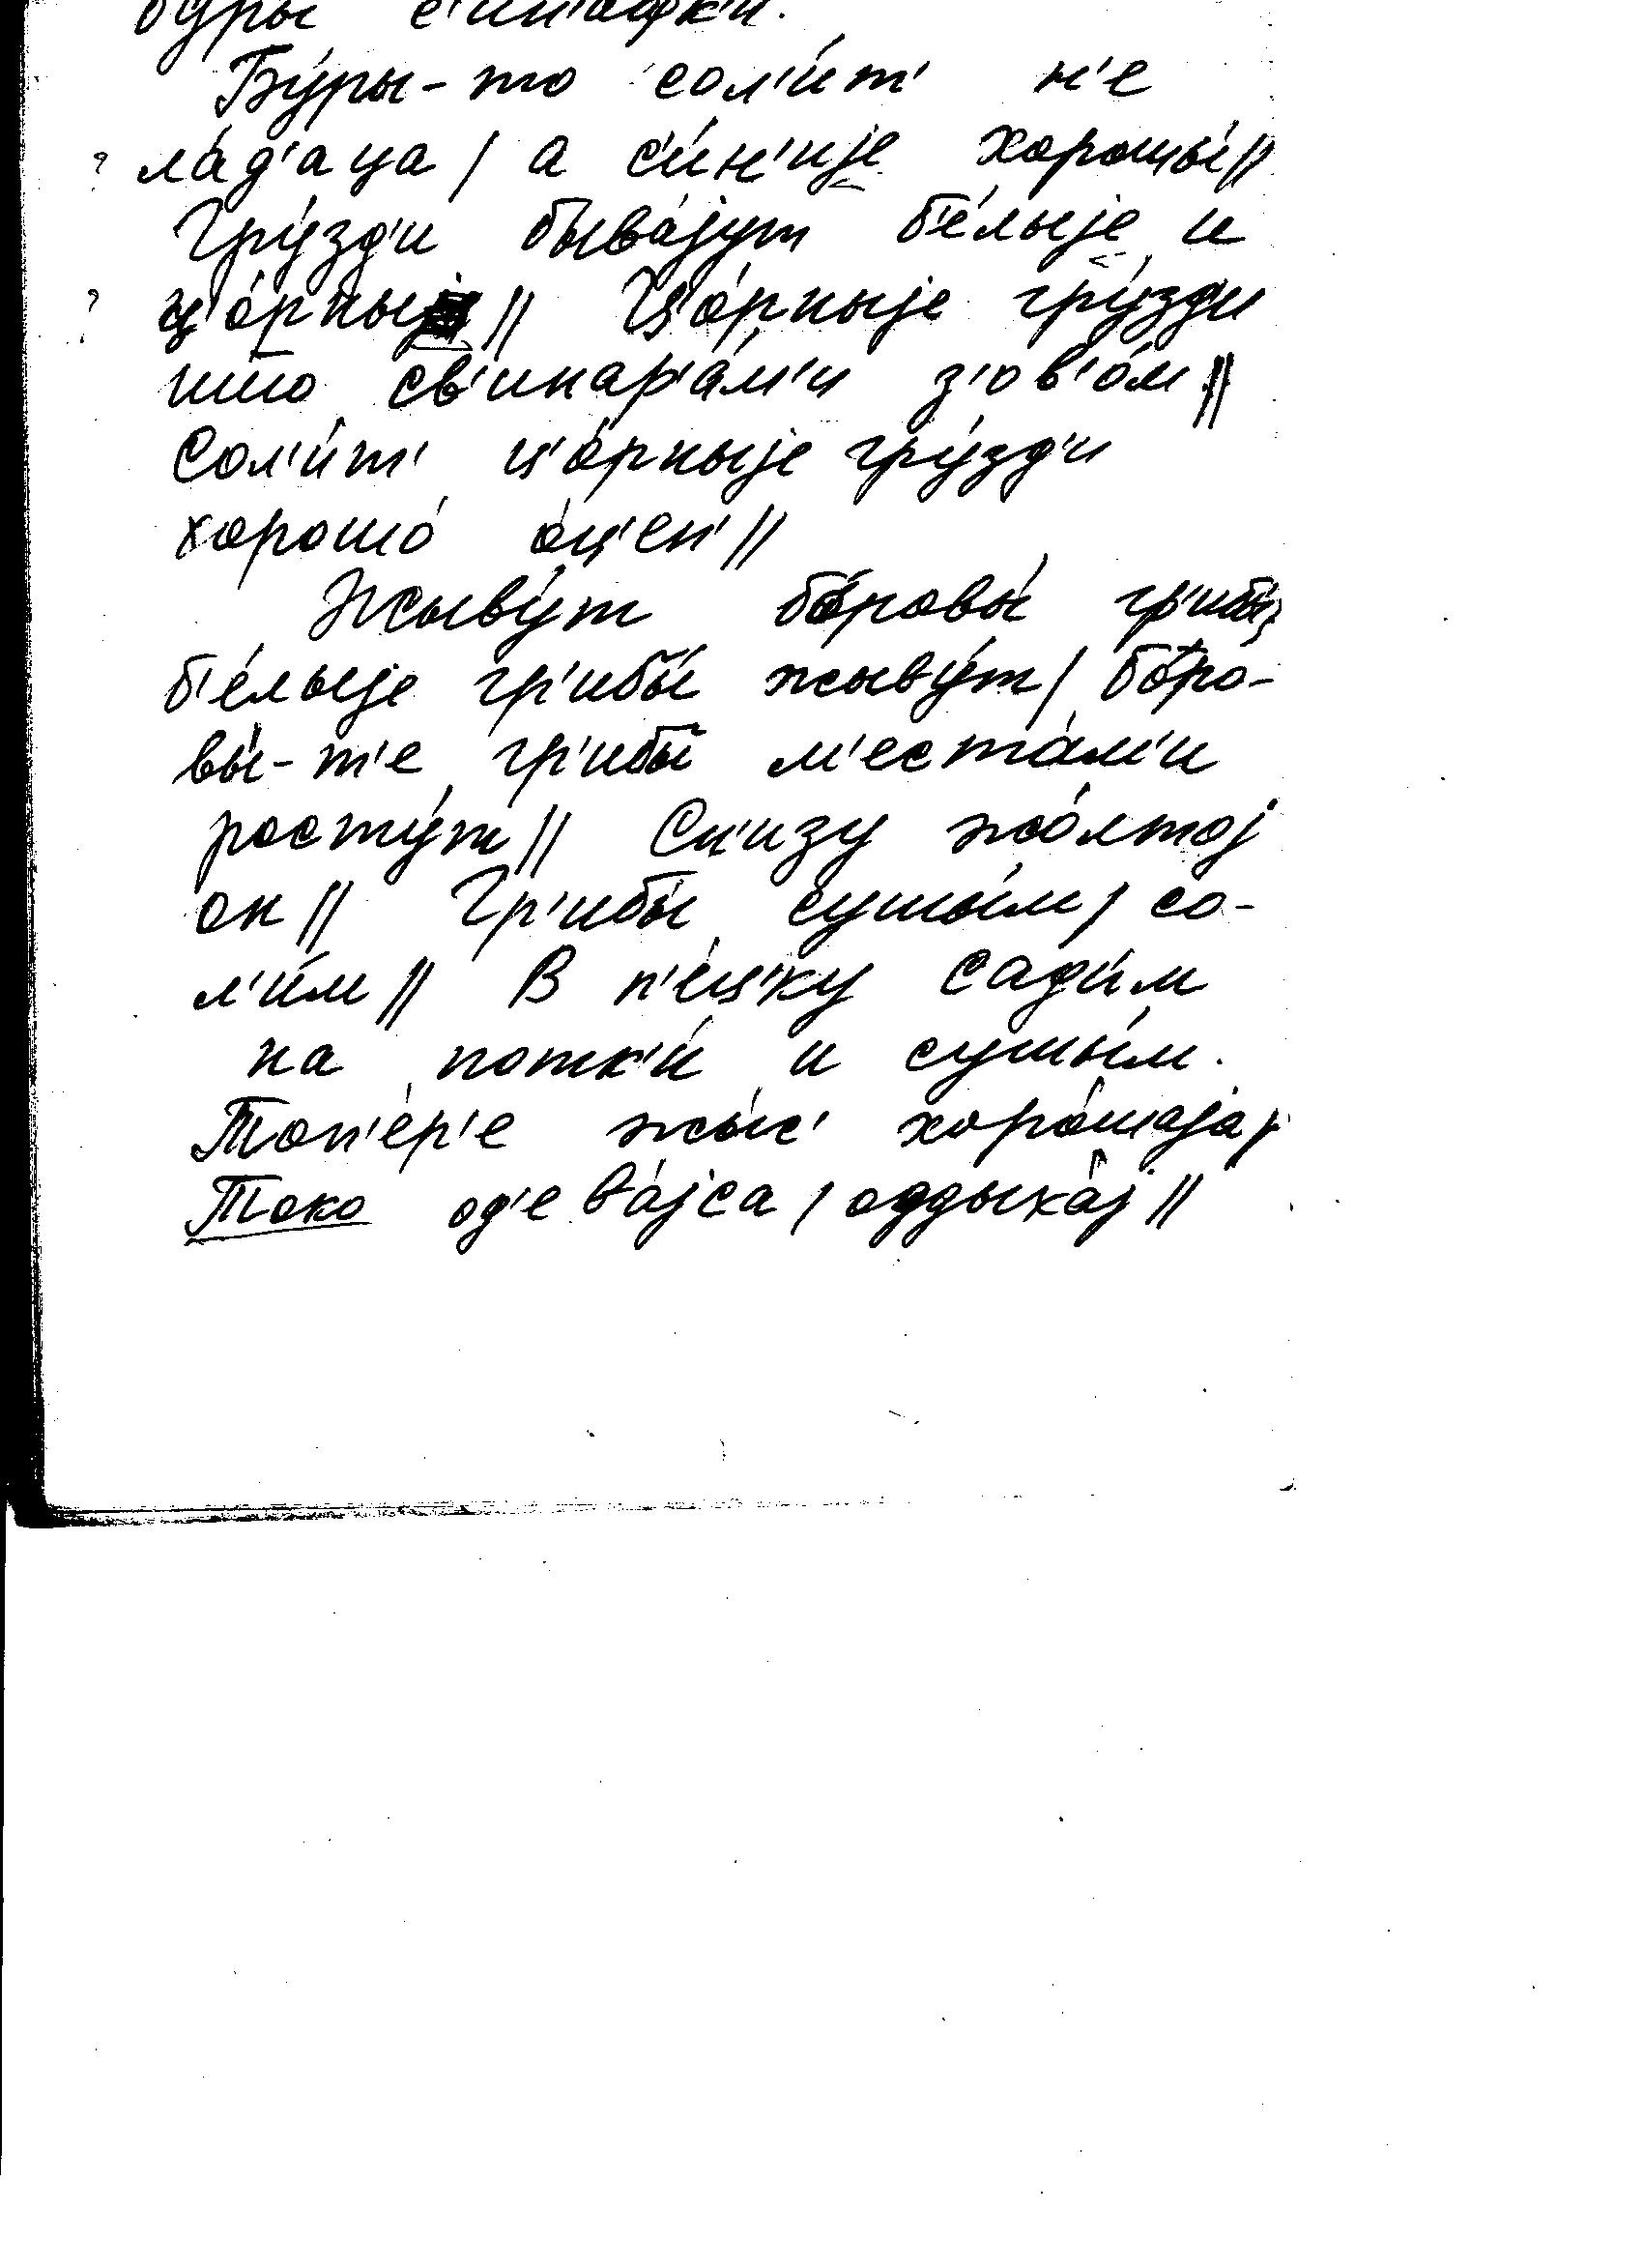 Бу́ры-то сол'и́т' н'е
? ла́д'аца / а с'и́н'ијe хорошы́ //
Гру́зд'и быва́јут б'е́лыје и
? ц'о́рныј // Ц'о́рныје гру́зд'и
што св'инар'а́м'и з'ов'о́м //
Сол'и́т' ц'о́рныје гру́зд'и
хорошо́ о́ц'ен' //
Жыву́т боровы́ гр'ибы́,
б'е́лыје гр'ибы́ жыву́т / боро-
вы́-т'е гр'ибы́ м'еста́м'и
росту́т // Сн'изу жо́лтој
он // Гр'ибы́ сушы́м / со-
л'и́м // В п'е́ц'ку сад'и́м
на потк'и́ и сушы́м.
Топ'е́р'е жыс' хоро́шаја /
Токо од'ева́јса / оддыха́ј //